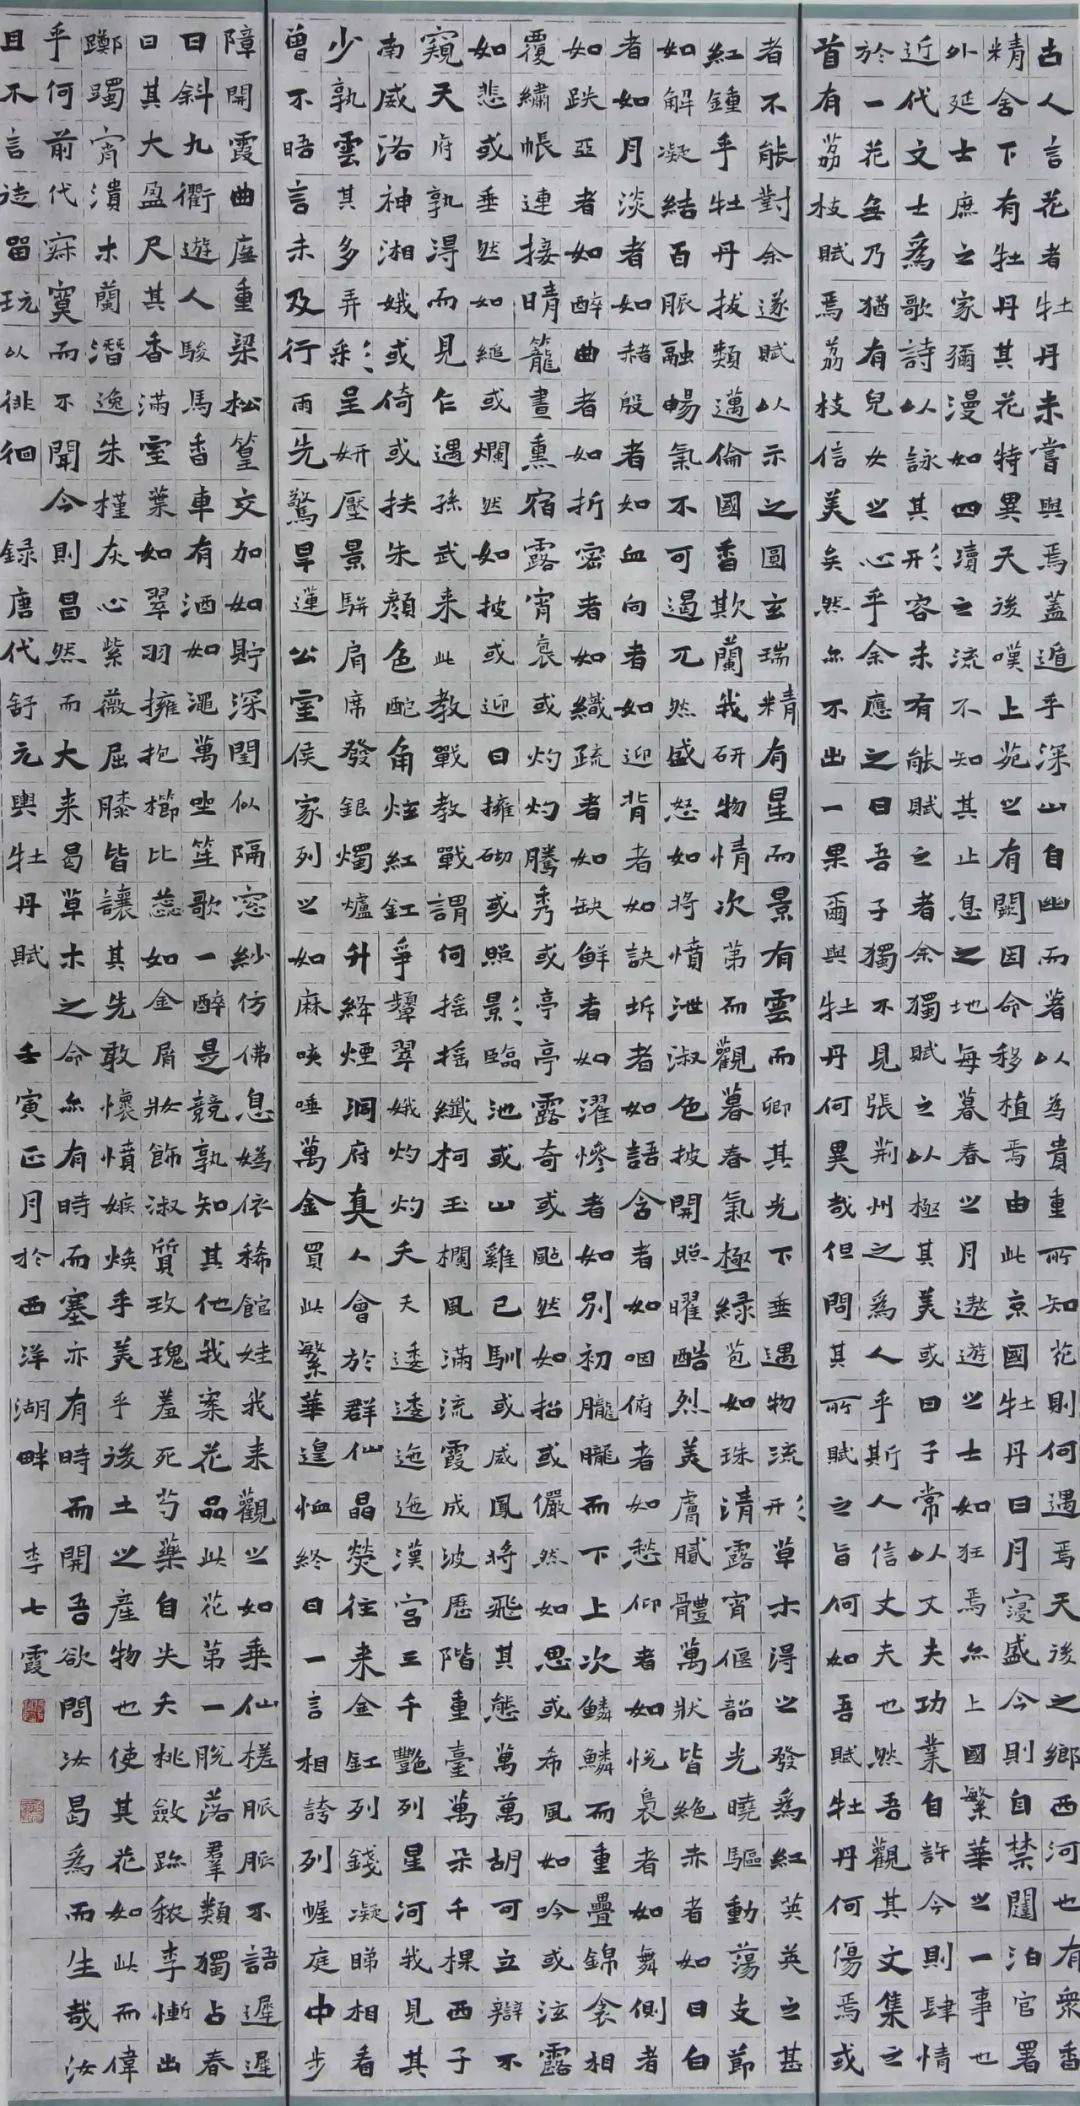 古人言花者牡丹未嘗與焉蓋遁乎深山自幽而著以為貴重所知花則何遇焉天後之鄉西河也有眾香
精舍下有牡丹其花特異天後嘆上苑之有闕因命移植焉由此京國牡丹日月寖盛今則自禁闥洎官署
外延士庶之家彌漫如四瀆之流不知其止息之地每暮春之月遨遊之士如狂焉亦上國繁華之一事也
近代文士為歌詩以詠其形容未有能賦之者余獨賦之以極其美或曰子常以丈夫功業自許今則肆情
於一花無乃猶有兒女之心乎余應之曰吾子獨不見張荊州之為人乎斯人信丈夫也然吾觀其文集之
首有荔枝賦焉荔枝信美矣然亦不出一果爾與牡丹何異哉但問其所賦之旨何如吾賦牡丹何傷焉或
者不能對余遂賦以示之圓玄瑞精有星而景有雲而卿其光下垂遇物流形草木得之發為紅英英之甚
紅鍾乎牡丹拔類邁倫國香欺蘭我研物情次第而觀暮春氣極綠苞如珠清露宵偃韶光曉驅動蕩支節
如解凝結百脈融暢氣不可遏兀然盛怒如將憤泄淑色披開照曜酷烈美膚膩體萬狀皆絕赤者如日白
者如月淡者如赭殷者如血向者如迎背者如訣坼者如語含者如咽俯者如愁仰者如悅裊者如舞側者
如跌亞者如醉曲者如折密者如織疏者如缺鮮者如濯慘者如別初朧朧而下上次鱗鱗而重疊錦衾相
覆繡帳連接晴籠晝熏宿露宵裛或灼灼騰秀或亭亭露奇或颭然如招或儼然如思或希風如吟或泫露
如悲或垂然如縋或爛然如披或迎日擁砌或照影臨池或山雞已馴或威鳳將飛其態萬萬胡可立辯不
窺天府孰得而見乍遇孫武來此教戰教戰謂何搖搖纖柯玉欄風滿流霞成波歷階重臺萬朵千棵西子
南威洛神湘娥或倚或扶朱顏色酡角炫紅釭爭顰翠娥灼灼夭夭逶逶迤迤漢宮三千艷列星河我見其
少孰雲其多弄彩呈妍壓景駢肩席發銀燭爐升絳煙洞府真人會於群仙晶熒往來金釭列錢凝睇相看
曾不晤言未及行雨先驚旱蓮公室侯家列之如麻咳唾萬金買此繁華遑恤終日一言相誇列幄庭中步
障開霞曲廡重梁松篁交加如貯深閨似隔窓紗仿佛息媯依稀館娃我來觀之如乘仙槎脈脈不語遲遲
日斜九衢遊人駿馬香車有酒如澠萬坐笙歌一醉是競孰知其他我案花品此花第一脫落羣類獨占春
日其大盈尺其香滿室葉如翠羽擁抱櫛比蕊如金屑妝飾淑質玫瑰羞死芍藥自失夭桃斂跡穠李慚出
躑躅宵潰木蘭潛逸朱槿灰心紫薇屈膝皆讓其先敢懷憤嫉煥乎美乎後土之產物也使其花如此而偉
乎何前代寂寞而不聞今則昌然而大來曷草木之命亦有時而塞亦有時而開吾欲問汝曷為而生哉汝
且不言徒留玩以徘徊 錄唐代舒元輿牡丹賦 壬寅正月於西洋湖畔 李七霞